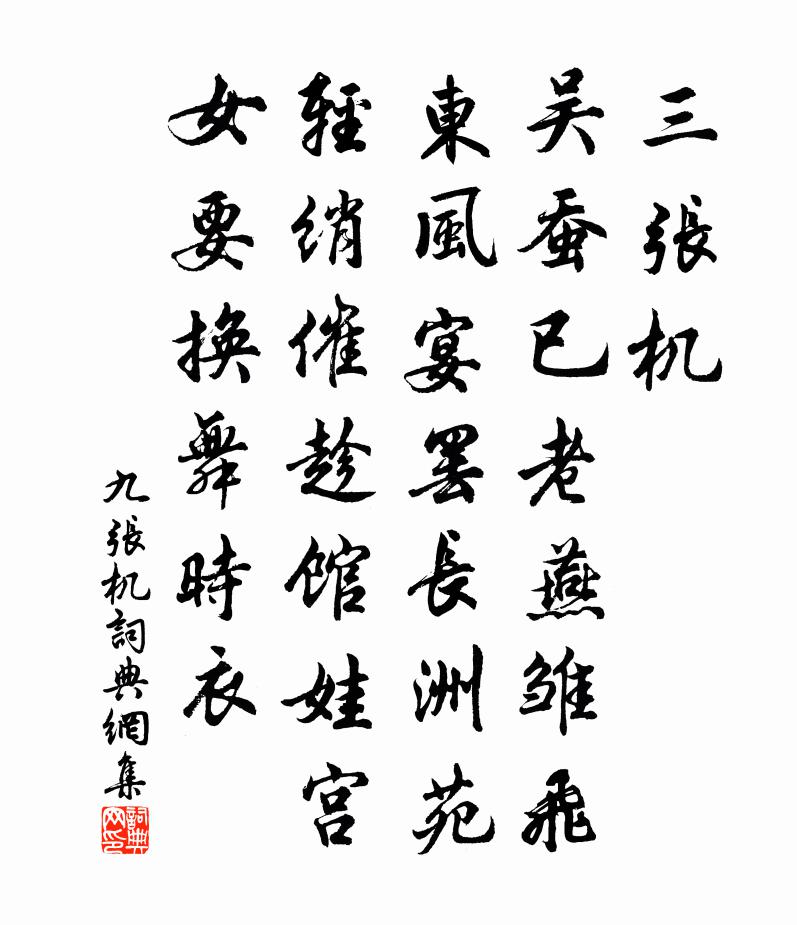 三張机
吴蚕已老燕雏飛
東風宴罢長洲苑
輕绡催趁馆娃宫
女要换舞時衣
九張机詞典網集
詞典网印